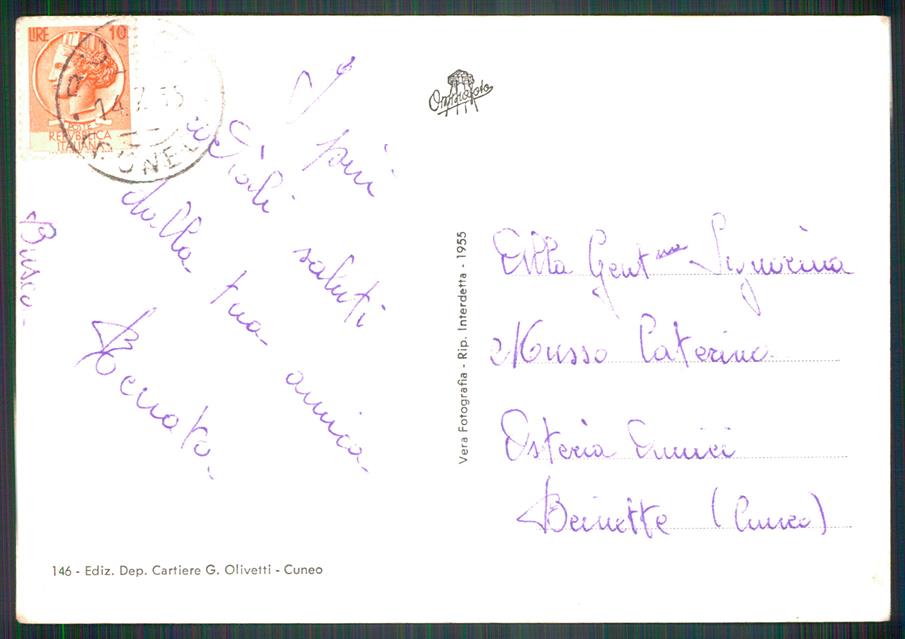 LIRE 10
POSTE
REPVBBLICA
ITALIANA
CUNEO
I più
cordiali saluti
dalla tua amica
Renata.
Busca.
Omniafoto
Vera Fotografia - Rip. Interdetta - 1955
Alla Gent.ma Signorina
Musso Caterina
Osteria Amici
Beinette (Cuneo)
146 - Ediz. Dep. Cartiere G. Olivetti - Cuneo